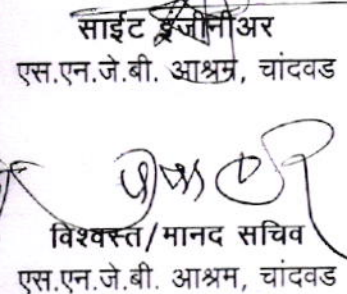 साईट इंजीनीअर
एस.एन.जे.बी. आश्रम, चांदवड
विश्वस्त/मानद सचिव
एस.एन.जे.बी. आश्रम, चांदवड